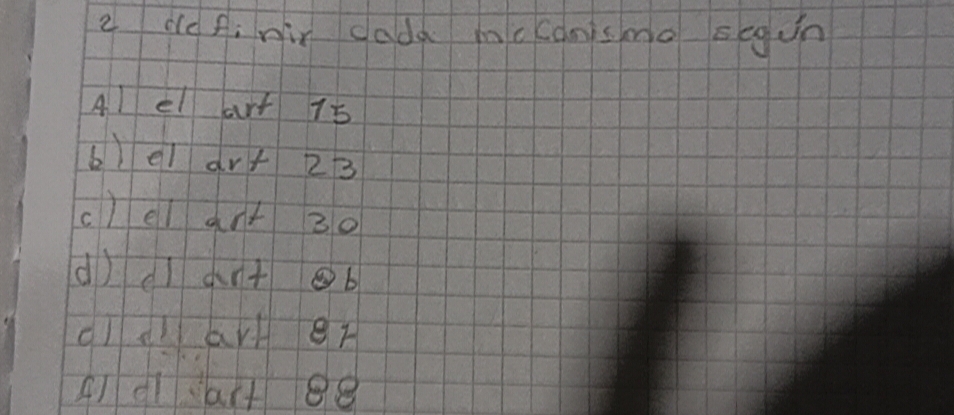 2 definir cada mecanismo según
A) el art 15
b) el art 23
c) el art 30
d) el art 86
e) el art 87
f) el art 88